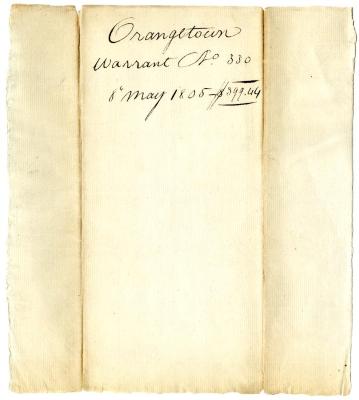 Orangetown
Warrant No 330
8th May 1805 - $399.44